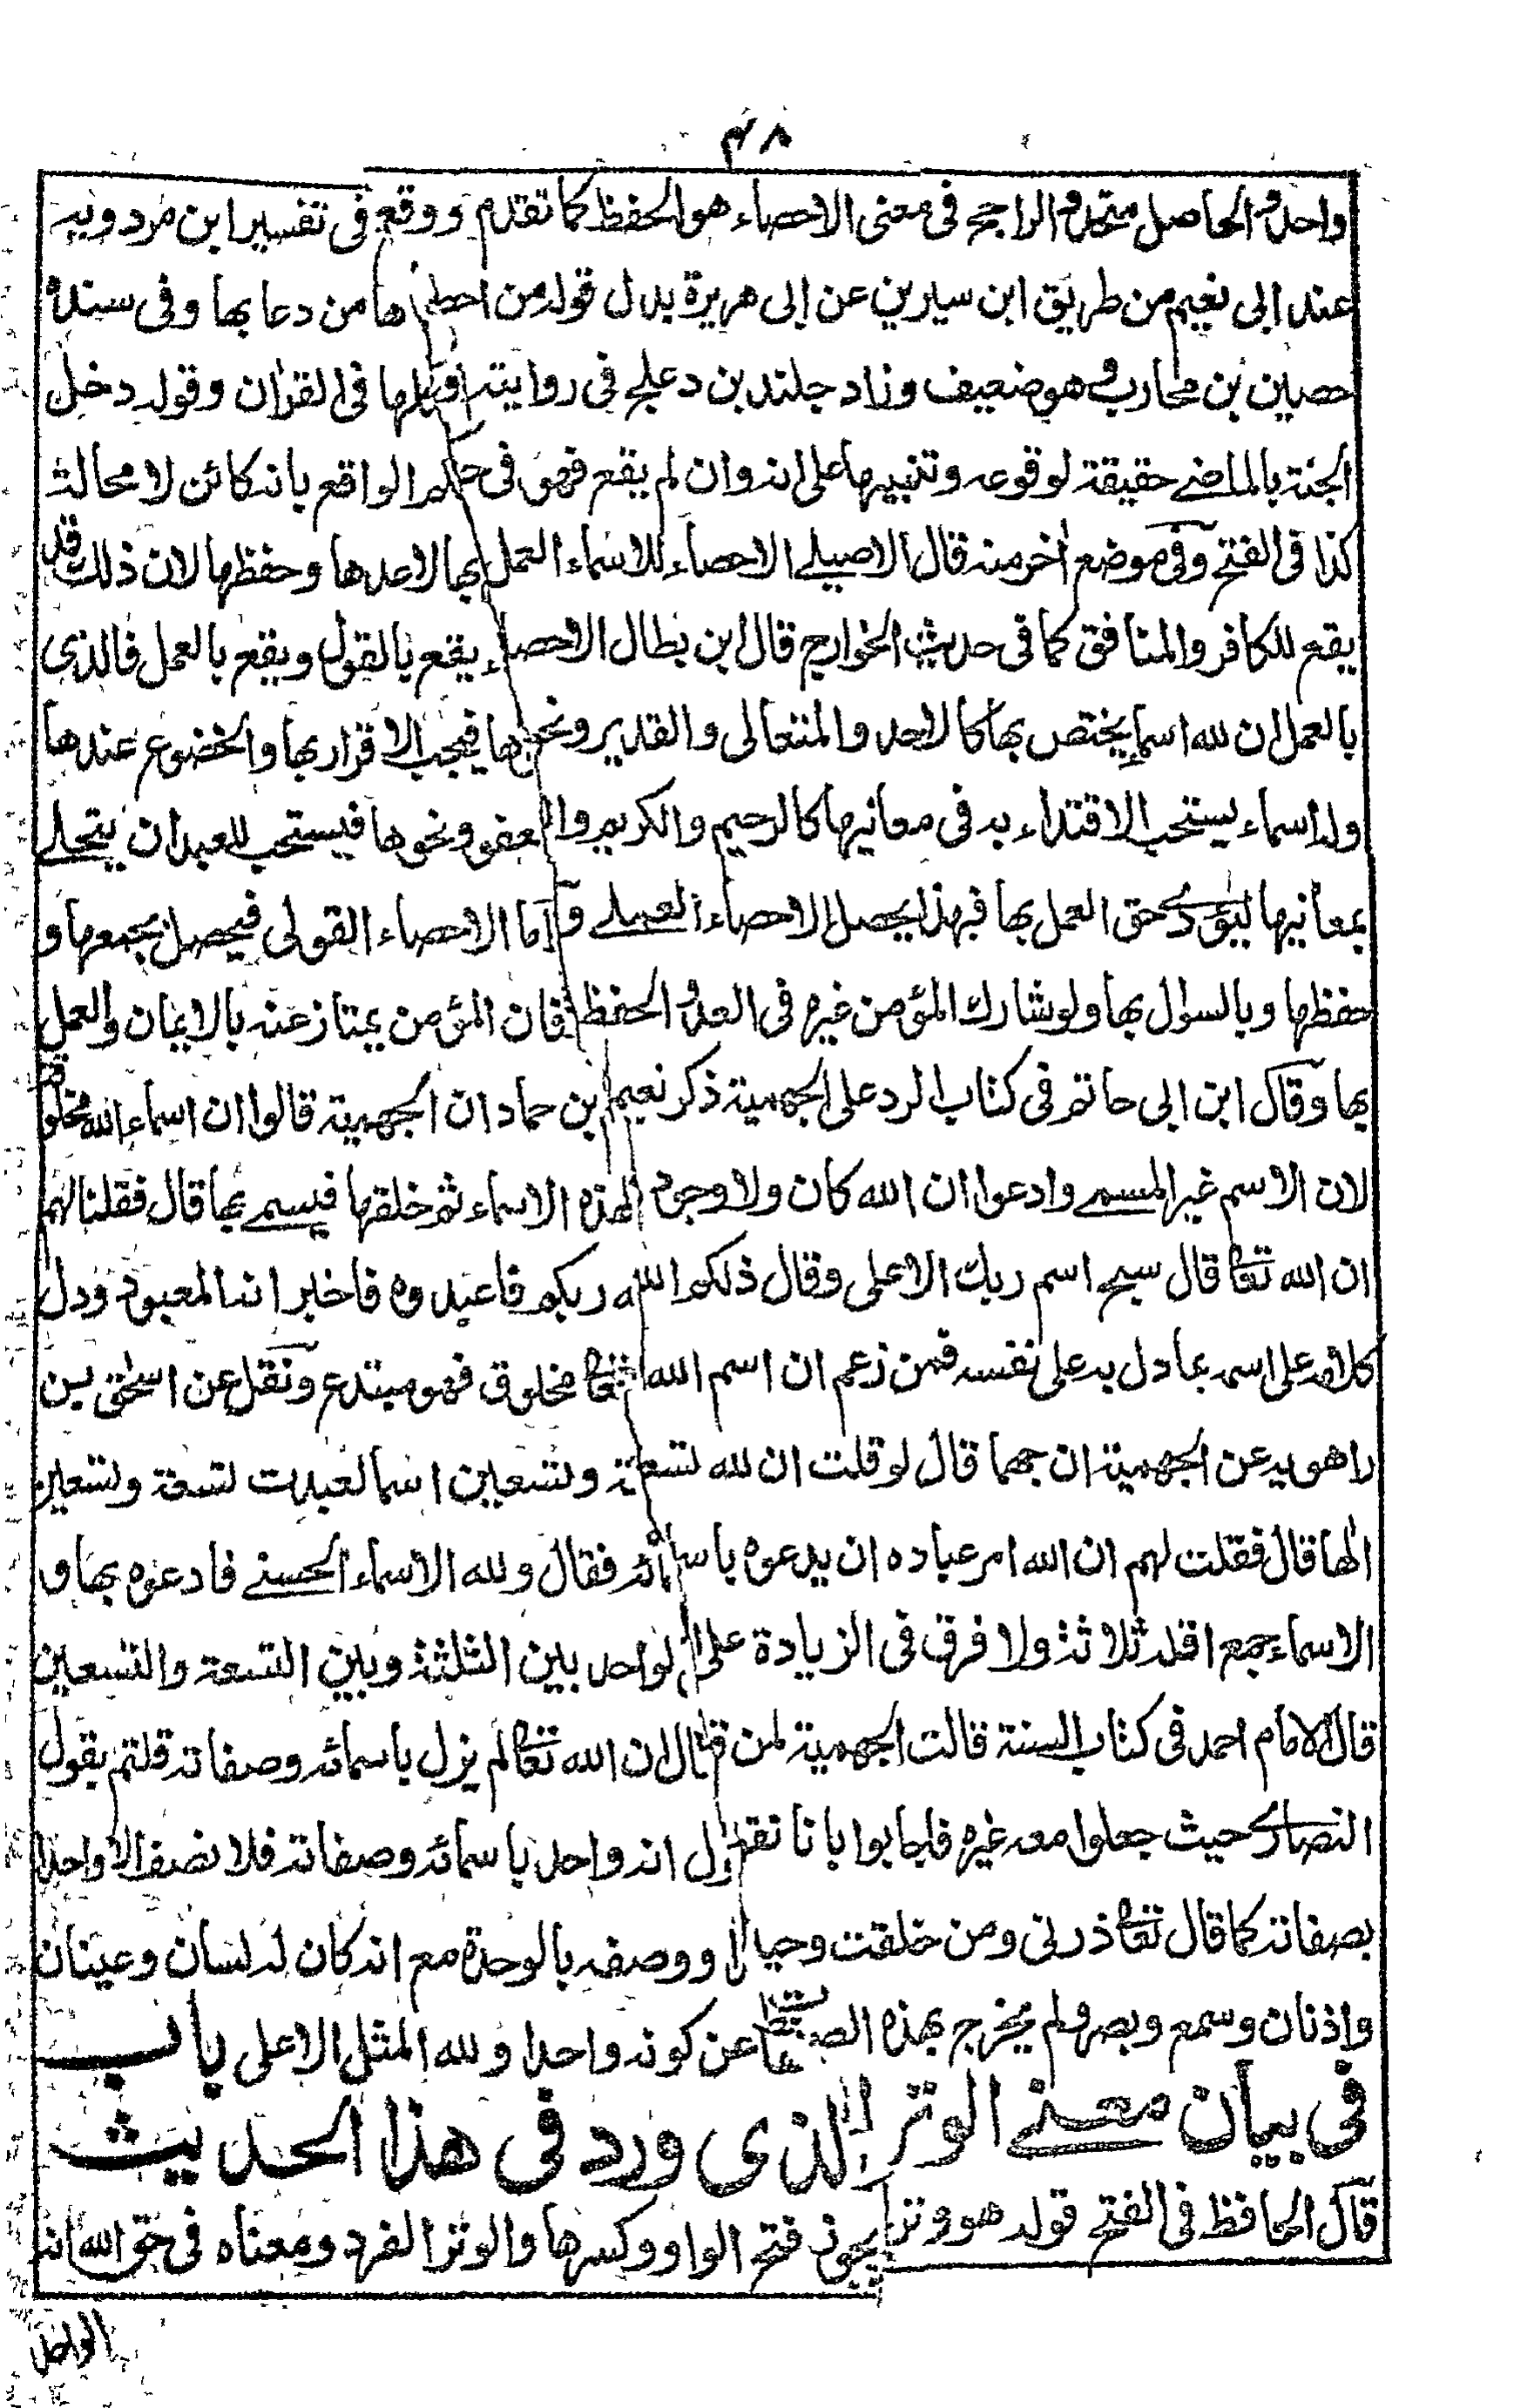 ۴۸
واحد و الحاصل متحد والراجح فی معنی الاحصاء هو الحفظ كما تقدم ووقع فی تفسیر ابن مردویه
عند ابی نعیم من طریق ابن سیرین عن ابی هریرة بدل قوله من احصاها من دعا بها وفی سنده
حصین بن مخارب وهو ضعیف وزاد جلند بن دعلج فی روایته وكلها فی القران وقوله دخل
الجنة بالماضی حقیقة لوقوعه وتنبیها علی انه وان لم یقع فهو فی حكم الواقع بانه كائن لا محالة
كذا فی الفتح وفی موضع اخر منه قال الاصیلی الاحصاء للاسماء العمل بها لا عدها وحفظها لان ذلك قد
یقع للكافر والمنافق كما فی حدیث الخوارج قال ابن بطال الاحصاء یقع بالقول ویقع بالعمل فالذی
بالعمل ان لله اسماء یختص بها كالاحد والمتعالی والقدیر ونحوها فیجب الاقرار بها والخضوع عندها
وله اسماء یستحب الاقتداء به فی معانیها كالرحیم والكریم والعفو ونحوها فیستحب للعبد ان یتحلی
بمعانیها لیؤدی حق العمل بها فبهذا یحصل الاحصاء العملی واما الاحصاء القولی فیحصل بجمعها و
حفظها وبالسوال بها ولو شارك المؤمن غیره فی العد والحفظ فان المؤمن یمتاز عنه بالایمان والعمل
بها وقال ابن ابی حاتم فی كتاب الرد علی الجهمیة ذكر نعیم ابن حماد ان الجهمیة قالوا ان اسماء الله مخلوقة
لان الاسم غیر المسمی وادعوا ان الله كان ولا وجود لهذه الاسماء ثم خلقها فیسمی بها قال فقلنا لهم
ان الله تعا قال سبح اسم ربك الاعلی وقال ذلكم الله ربكم فاعبدوه فاخبر انه المعبود ودل
كلامه علی اسمه بما دل به علی نفسه فمن زعم ان اسم الله تعا مخلوق فهو مبتدع ونقل عن اسحٰق بن
راهویه عن الجهمیة ان جهما قال لو قلت ان لله تسعة وتسعین اسما لعبدت تسعة وتسعین
الٰها قال فقلت لهم ان الله امر عباده ان یدعوه باسمائه فقال ولله الاسماء الحسنی فادعوه بها و
الاسماء جمع اقله ثلاثة ولا فرق فی الزیادة علی الواحد بین الثلثة وبین التسعة والتسعین
قال الامام احمد فی كتاب السنة قالت الجهمیة لمن قال ان الله تعا لم یزل باسمائه وصفاته قلتم بقول
النصاری حیث جعلوا معه غیره فاجابوا بانا نقول انه واحد باسمائه وصفاته فلا نصف الا واحدا
بصفاته كما قال تعا ذرنی ومن خلقت وحیدا ووصفه بالوحدة مع انه كان له لسان وعینان
واذنان وسمع وبصر ولم یخرج بهذه الصفات عن كونه واحدا ولله المثل الاعلی باب
فی بیان معنی الوتر الذی ورد فی هذا الحدیث
قال الحافظ فی الفتح قوله هو وتر یجوز فتح الواو وكسرها والوتر الفرد ومعناه فی حق الله انه
الواحد